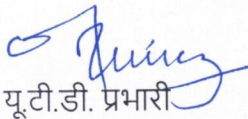 यू.टी.डी. प्रभारी